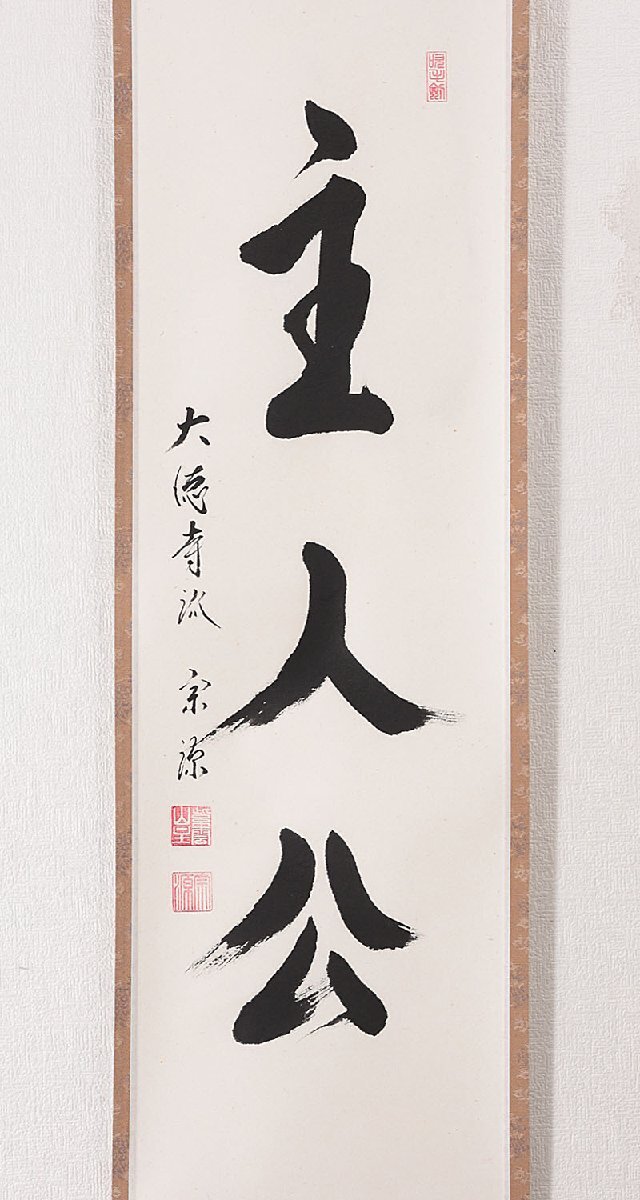 主人公
大徳寺派 宗源